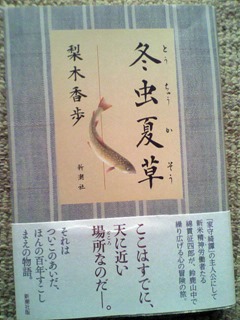 冬虫夏草
とうちゅうかそう
梨木香歩
新潮社
『家守綺譚』の主人公にして
新米精神労働者たる
綿貫征四郎が、鈴鹿山中で
繰り広げる心の冒険の旅。
ここはすでに、
天に近い
場所なのだ――。
ところ
それは
ついこのあいだ、
ほんの百年すこし
まえの物語。
新潮社版